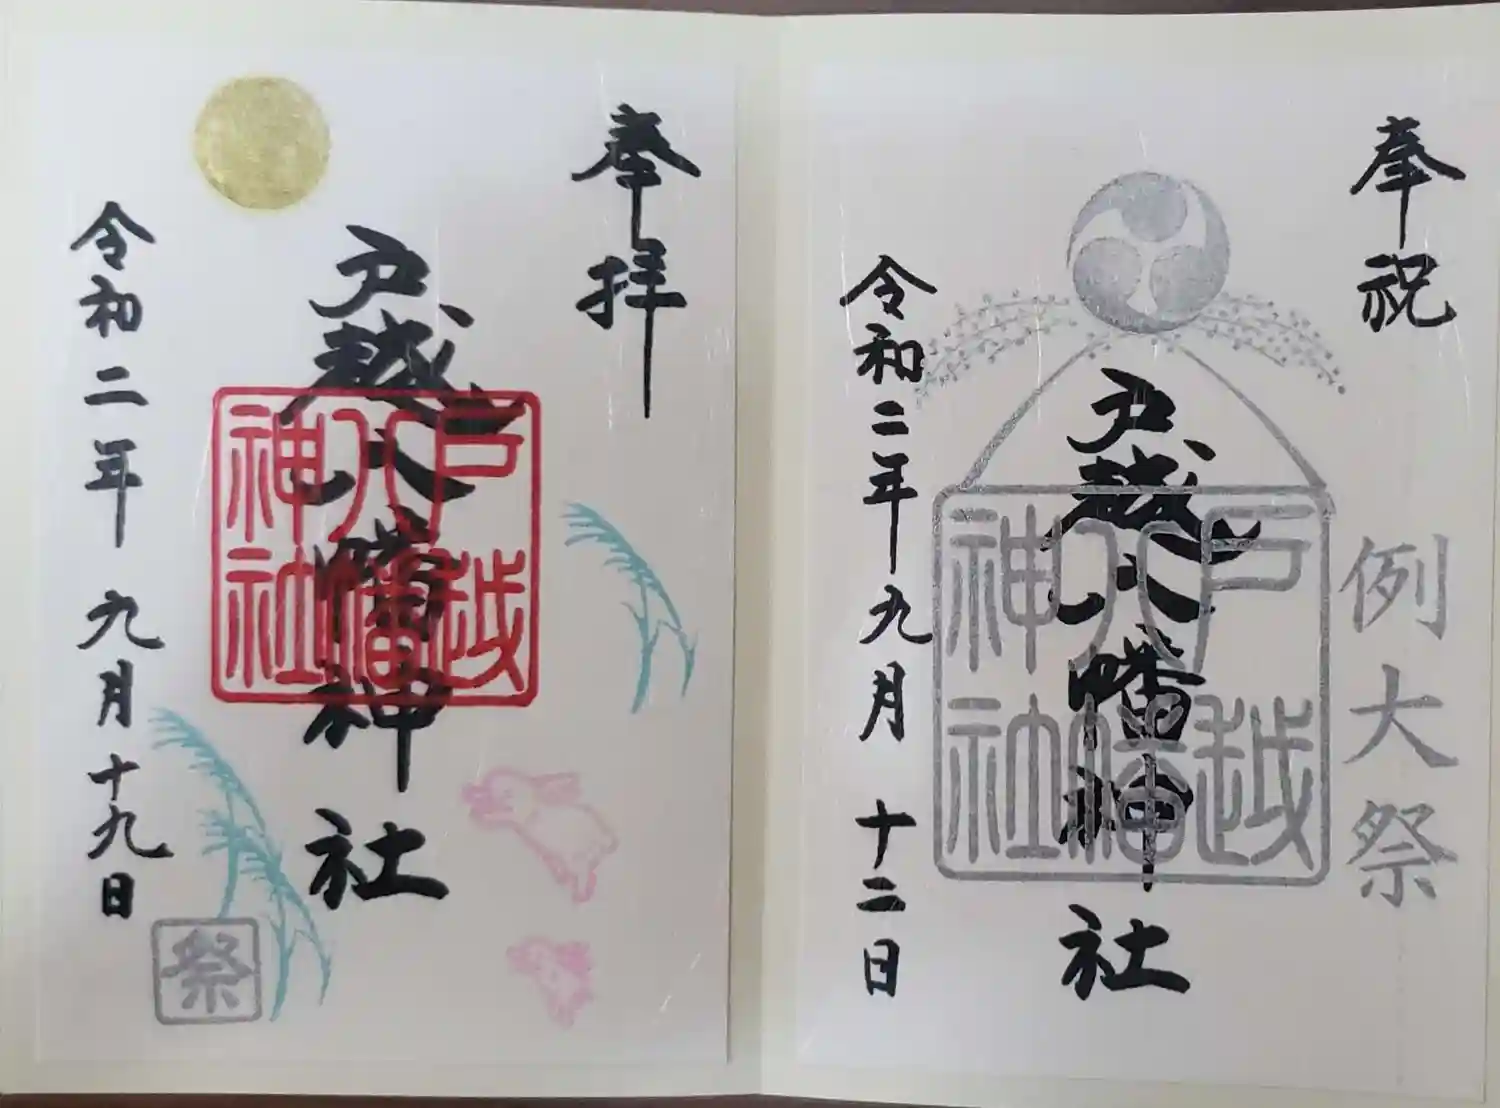 奉祝
例大祭
戸越八幡神社
戸越
八幡
神社
令和二年九月十二日
奉拝
戸越八幡神社
戸越
八幡
神社
令和二年九月十九日
祭